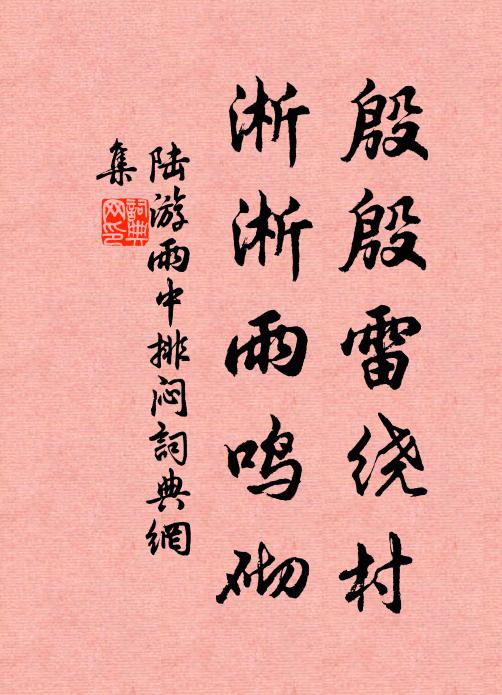 殷殷雷绕村
淅淅雨鸣砌
陆游雨中排闷詞典網
集
詞典
网印